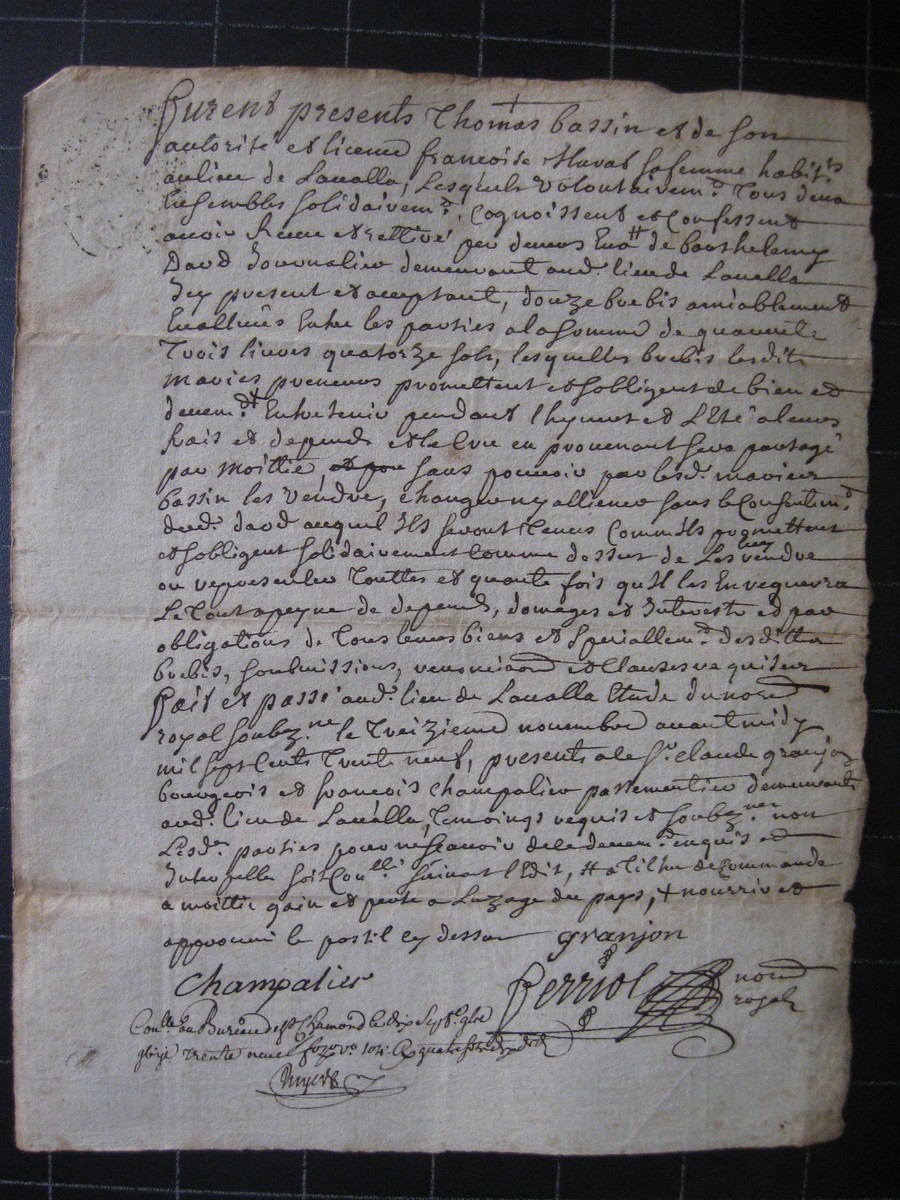 furent presents Thomas bassin et de son
autorité et licence francoise Mavas sa femme habit.ts
au lieu de Lavalla, Lesquels volontairem.t Tous deux
Ensembles solidairem.t, Cognoissent et Confessent
avoir Receu et rettiré per devers Eux # de barthelemy
David Journalier demeurant aud. lieu de Lavalla
Icy present et acceptant, douze brebis amiablement
Evalluées Entre les parties a la somme de quarente
Trois livres quatorze sols, lesquelles brebis lesdits
mariés preneurs promettent et sobligent de bien et
deuem.t + Entretenir pendant l'hyvert et L'Eté a leurs
frais et depends et le Cru en provenant sera partagé
par moittié, et par sans pouvoir par lesd. mariés
bassin les vendre, changer ny alliener sans le Consentem.t
dud. david auquel ils seront Tenus Comm'ils promettent
et sobligent solidairement Comme dessus de Les luy rendre
ou representer Touttes et quante fois qu'Il les En requerra
Le Tout a peyne de depends, domages et Interests et par
obligations de Tous leurs biens et speciallem.t desdittes
brebis, soubmissions, renonciaõns et Clauses requises
fait et passé aud. lieu de Lavalla Etude du no.re
royal soubz.né le Treizieme novembre avant midy
mil sept Cents Trente neuf, presents a ce S.r claude granjon
bourgeois et francois champalier passementier demeurants
aud. lieu de Lavalla, Temoings requis et soubz.nes non
Lesd. parties pour ne scavoir de ce deuem.t enquis et
Interpellé soit Con.llé suivant l'Edit, # a Tiltre de Commande
a moittié gain et perte a Luzage du pays, + nourrir et
approuvé le postil cy dessus granjon
Champalier
Perriol no.re
royal
Con.llé au Bureau de S.t Chamond le
trente neuf quatre